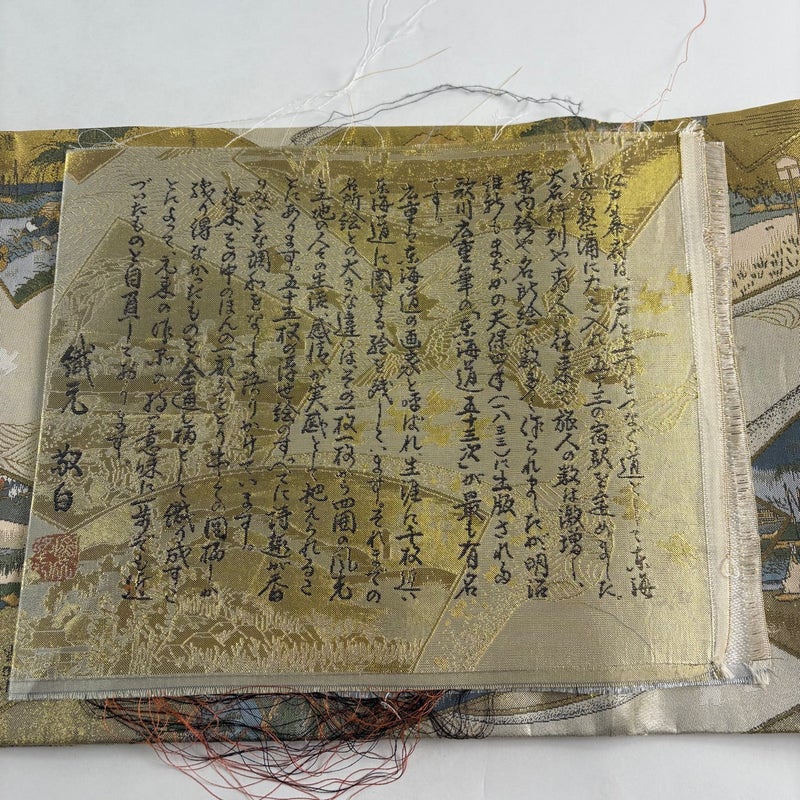 江戸幕府は江戸と上方とつなぐ道として東海
道の整備に力を入れ五十三の宿駅を定めました。
大名行列や商人の往来で旅人の数は激増し、
案内絵や名所絵が数多く作られましたが明治
維新もまぢかの天保四年(一八三三)に出版された
歌川広重筆の「東海道五十三次」が最も有名
です。
広重は東海道の画家と呼ばれ生涯に千枚近い
東海道に関する絵を残しています。それまでの
名所絵との大きな違いはその一枚一枚から四囲の風光
と土地の人々の生活感情が実感として把えられるこ
とにあります。五十五枚の浮世絵のすべてに詩趣が香
りみごとな調和をなしよく語りかけています。
従来その中のほんの一部分をとり牛々の図柄しか
織り得なかったものを全通し柄として織り成すこ
とによって元来の作品の持つ意味に一歩でも近
づいたものと自負しております
織元 敬白